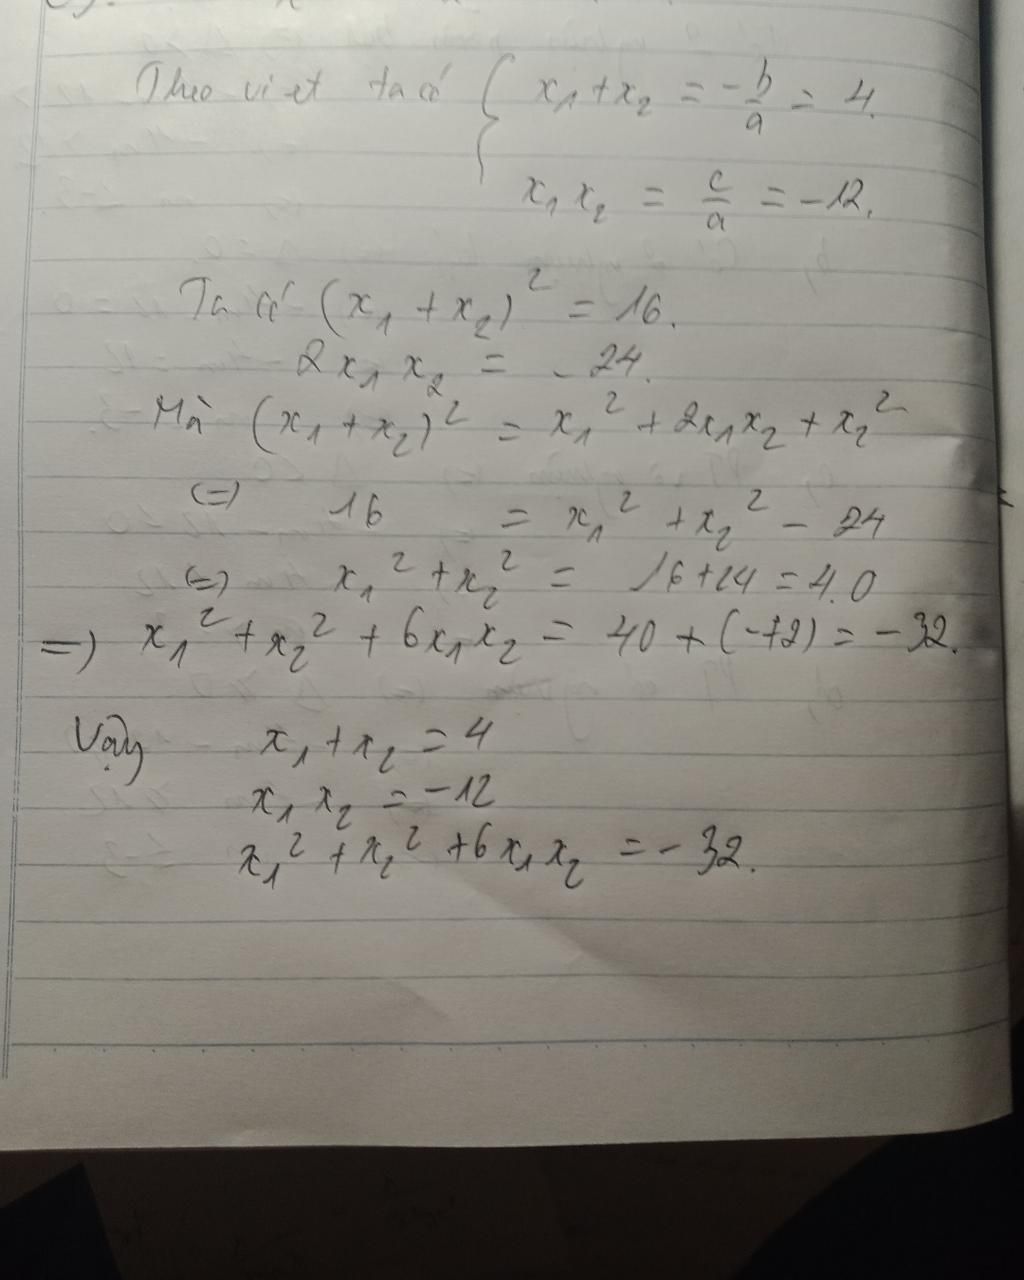 Theo viet ta có { x₁ + x₂ = -b/a = 4.
x₁ x₂ = c/a = -12.
Ta có (x₁ + x₂)² = 16.
2x₁ x₂ = - 24.
Mà (x₁ + x₂)² = x₁² + 2x₁x₂ + x₂²
(=) 16 = x₁² + x₂² - 24
(=) x₁² + x₂² = 16 + 24 = 40
=) x₁² + x₂² + 6x₁x₂ = 40 + (-72) = -32.
Vậy x₁ + x₂ = 4
x₁ x₂ = -12
x₁² + x₂² + 6x₁x₂ = -32.